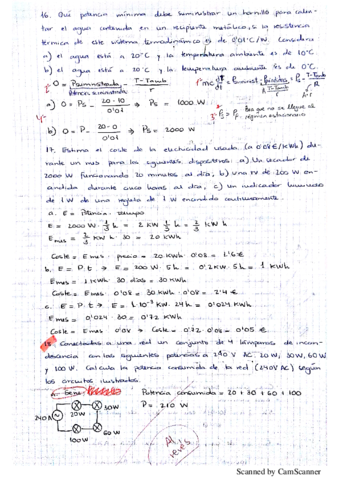 16. Qué potencia mínima debe suministrar un hornillo para calen-
tar el agua contenida en un recipiente metálico, si la resistencia
térmica de este sistema termodinámico es de 0'01°C/W. Considera
a) el agua está a 20°C y la temperatura ambiente es de 10°C
b) el agua está a 20°C y la temperatura ambiente es de 0°C.
a) 0 = Ps - 20-10 / 0'01 ⇒ Ps = 1000 W
b) 0 = P - 20-0 / 0'01 ⇒ Ps = 2000 W
17. Estima el coste de la electricidad usada (a 0'08€/kWh) du-
rante un mes para los siguientes dispositivos: a) Un secador de
2000 W funcionando 20 minutos al día, b) una TV de 200 W en-
cendida durante cinco horas al día, c) un indicador luminoso
de 1W de una regleta de 1W encendida continuamente.
a. E = Potencia · tiempo
E = 2000 W · 1/3 h = 2 kW 1/3 h = 2/3 kW h
Emes = 2/3 kW h · 30 = 20 kWh
Coste = Emes · precio = 20 kWh · 0'08 = 1'6€
b. E = P.t → E = 200 W · 5h = 0'2kW · 5h = 1 kWh
Emes = 1kWh · 30 días = 30 kWh
Coste = Emes · 0'08 = 30kWh · 0'08 = 2'4 €
c. E = P.t → E = 1·10⁻³ kW · 24h = 0'024 kWh
Emes = 0'024 · 30 = 0'72 kWh
Coste = Emes · 0'08 → Coste = 0'72 · 0'08 = 0'05 €
18. Conectadas a una red un conjunto de 4 lámparas de incan-
descencia con las siguientes potencias a 240 V AC: 20W, 30W, 60W
y 100W. Calcula la potencia consumida de la red (240V AC) según
los circuitos ilustrados.
Potencia consumida = 20 + 30 + 60 + 100
P = 210 W
20W 30W
240
100W 60W
Scanned by CamScanner